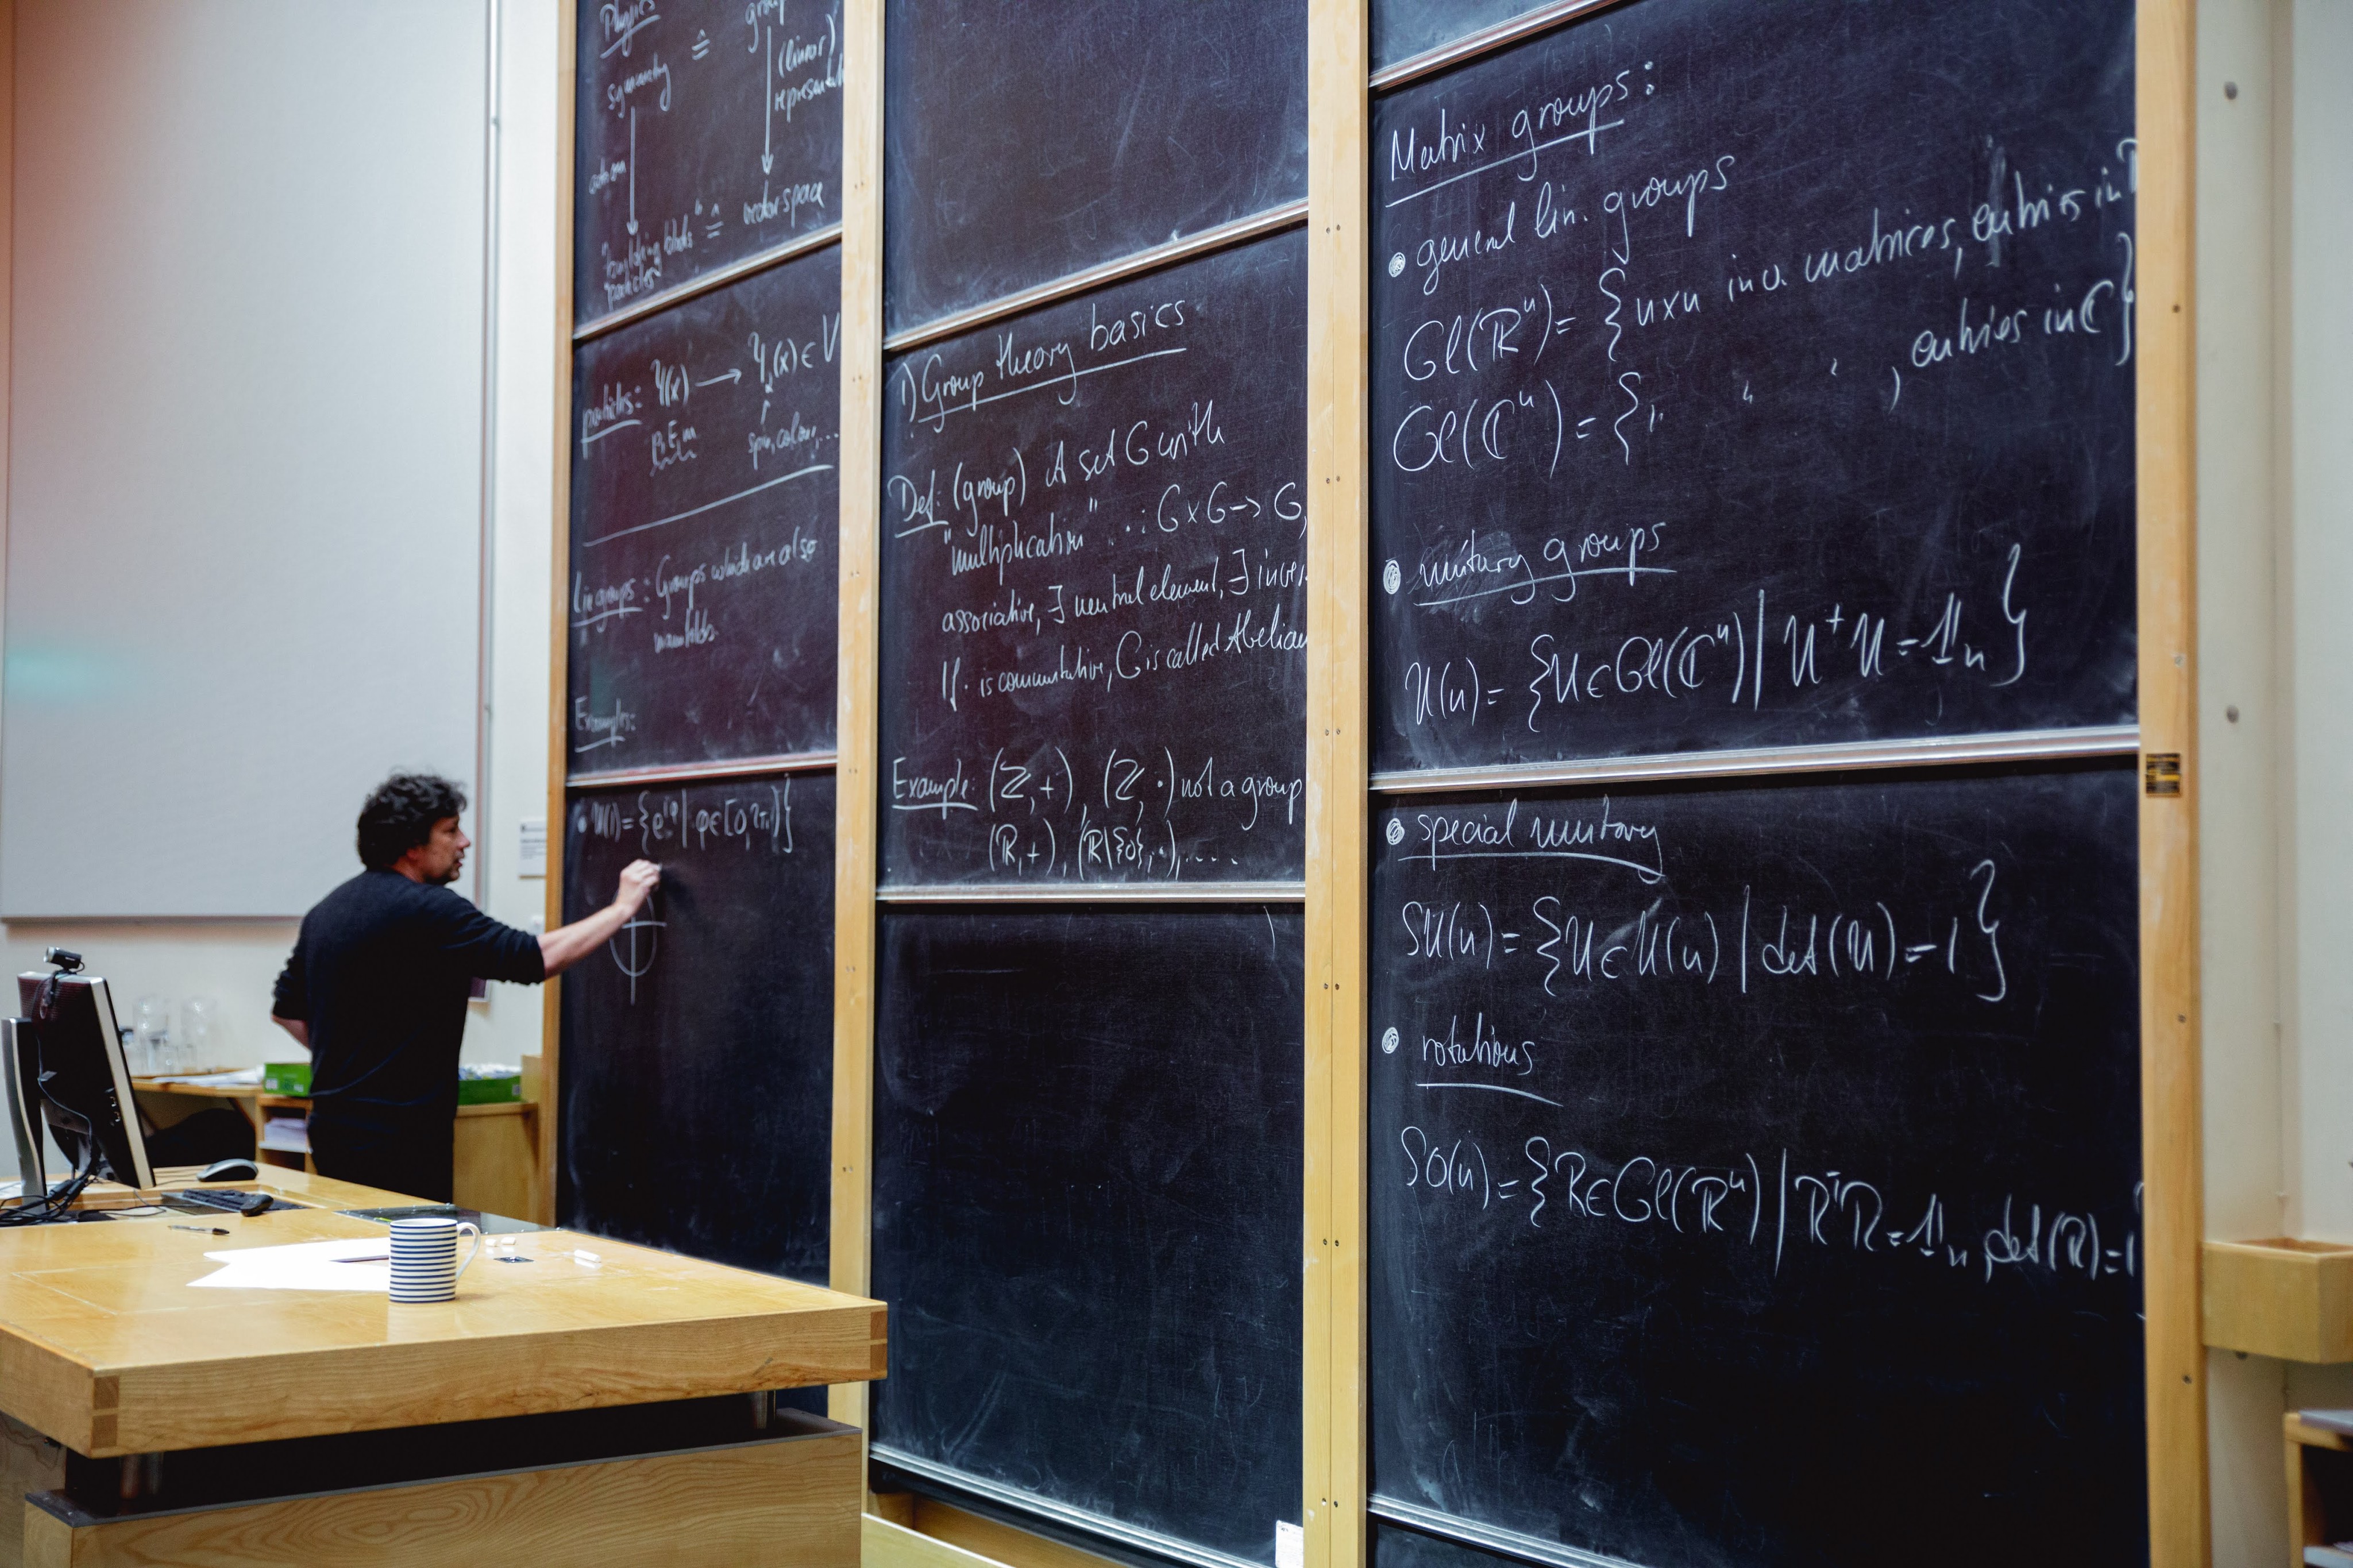 Physics
symmetry ≙ group
(linear)
action
"building blocks" ≙ vector space
particles
particles: Ψ(x) → Ψᵢ(x) ∈ V
p, E, m
spin, colour, ...
Lie groups: Groups which are also
manifolds
Examples:
• U(1) = {e^{iφ} | φ ∈ [0, 2π)}
1) Group theory basics
Def: (group) A set G with
"multiplication" · : G × G → G,
associative, ∃ neutral element, ∃
If · is commutative, G is called Abelian
Example: (ℤ, +), (ℤ, ·) not a group
(ℝ, +), (ℝ\{0}, ·), ....
Matrix groups:
• general lin. groups
Gl(ℝⁿ) = { n×n inv. matrices, entries in ℝ
Gl(ℂⁿ) = { " " " , entries in ℂ }
• unitary groups
U(n) = { U ∈ Gl(ℂⁿ) | U⁺U = 𝟙ₙ }
• special unitary
SU(n) = { U ∈ U(n) | det(U) = 1 }
• rotations
SO(n) = { R ∈ Gl(ℝⁿ) | RᵀR = 𝟙ₙ, det(R) = 1